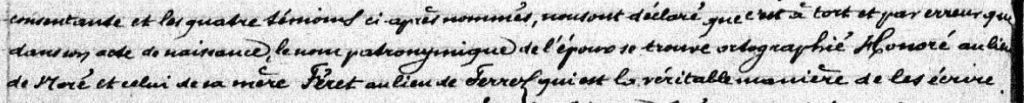 consentante et les quatre témoins ci-après nommés, nous ont déclaré que c'est à tort et par erreur que
dans son acte de naissance, le nom patronymique de l'époux se trouve ortographié Honoré au lieu
de Noré et celui de sa mère Féret au lieu de Ferrel qui est la véritable manière de les écrire.